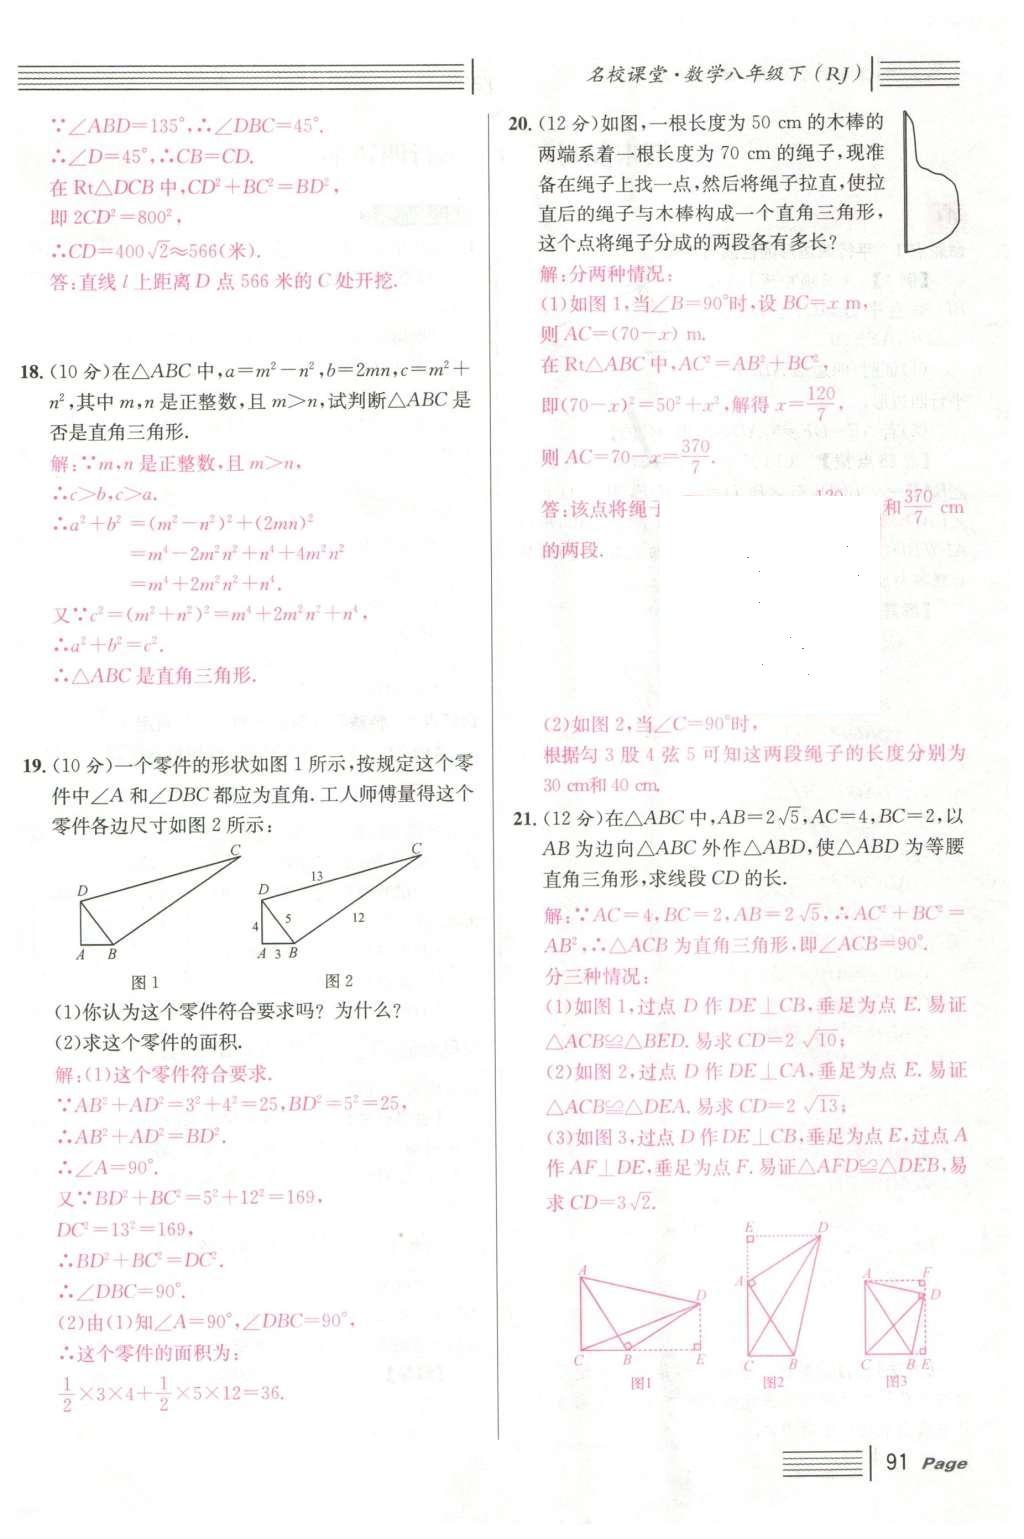 名校课堂·数学八年级下（RJ）
∵∠ABD=135°,∴∠DBC=45°.
∴∠D=45°,∴CB=CD.
在 Rt△DCB 中,CD²+BC²=BD²,
即 2CD²=800²,
∴CD=400√2≈566(米).
答:直线 l 上距离 D 点 566 米的 C 处开挖.
18.(10 分)在△ABC 中,a=m²-n²,b=2mn,c=m²+
n²,其中 m,n 是正整数,且 m>n,试判断△ABC 是
否是直角三角形.
解:∵m,n 是正整数,且 m>n,
∴c>b,c>a.
∴a²+b²=(m²-n²)²+(2mn)²
=m⁴-2m²n²+n⁴+4m²n²
=m⁴+2m²n²+n⁴.
又∵c²=(m²+n²)²=m⁴+2m²n²+n⁴,
∴a²+b²=c².
∴△ABC 是直角三角形.
19.(10 分)一个零件的形状如图 1 所示,按规定这个零
件中∠A 和∠DBC 都应为直角.工人师傅量得这个
零件各边尺寸如图 2 所示:
C
D
A B
图 1
C
13
D
5
4
12
A 3 B
图 2
(1)你认为这个零件符合要求吗? 为什么?
(2)求这个零件的面积.
解:(1)这个零件符合要求.
∵AB²+AD²=3²+4²=25,BD²=5²=25,
∴AB²+AD²=BD².
∴∠A=90°.
又∵BD²+BC²=5²+12²=169,
DC²=13²=169,
∴BD²+BC²=DC².
∴∠DBC=90°.
(2)由(1)知∠A=90°,∠DBC=90°,
∴这个零件的面积为:
1/2×3×4+1/2×5×12=36.
20.(12 分)如图,一根长度为 50 cm 的木棒的
两端系着一根长度为 70 cm 的绳子,现准
备在绳子上找一点,然后将绳子拉直,使拉
直后的绳子与木棒构成一个直角三角形,
这个点将绳子分成的两段各有多长?
解:分两种情况:
(1)如图 1,当∠B=90°时,设 BC=x m,
则 AC=(70-x) m.
在 Rt△ABC 中,AC²=AB²+BC²,
即(70-x)²=50²+x²,解得 x=120/7,
则 AC=70-x=370/7.
答:该点将绳子
和370/7 cm
的两段.
(2)如图 2,当∠C=90°时,
根据勾 3 股 4 弦 5 可知这两段绳子的长度分别为
30 cm和 40 cm.
21.(12 分)在△ABC 中,AB=2√5,AC=4,BC=2,以
AB 为边向△ABC 外作△ABD,使△ABD 为等腰
直角三角形,求线段 CD 的长.
解:∵AC=4,BC=2,AB=2√5,∴AC²+BC²=
AB²,∴△ACB 为直角三角形,即∠ACB=90°.
分三种情况:
(1)如图 1,过点 D 作 DE⊥CB,垂足为点 E.易证
△ACB≌△BED.易求 CD=2√10;
(2)如图 2,过点 D 作 DE⊥CA,垂足为点 E.易证
△ACB≌△DEA.易求 CD=2√13;
(3)如图 3,过点 D 作 DE⊥CB,垂足为点 E,过点 A
作 AF⊥DE,垂足为点 F.易证△AFD≌△DEB,易
求 CD=3√2.
A
D
C B E
图1
E D
A
C B
图2
A F
D
C B E
图3
91 Page